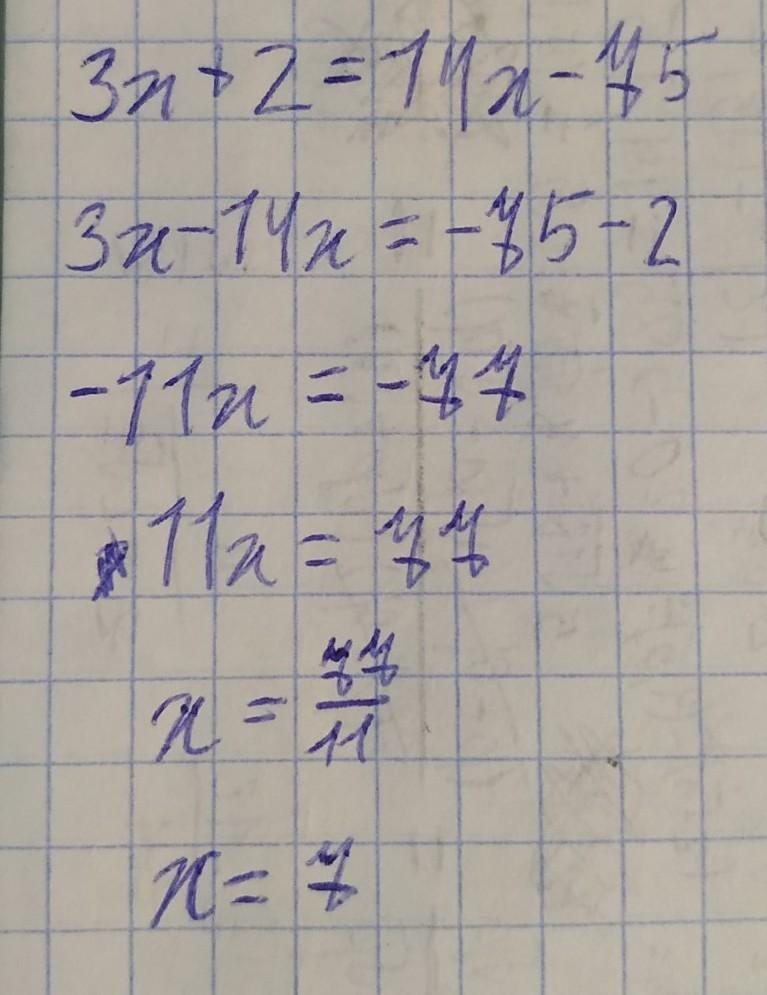 3x+2=14x-75
3x-14x=-75-2
-11x=-77
11x=77
x=77/11
x=7